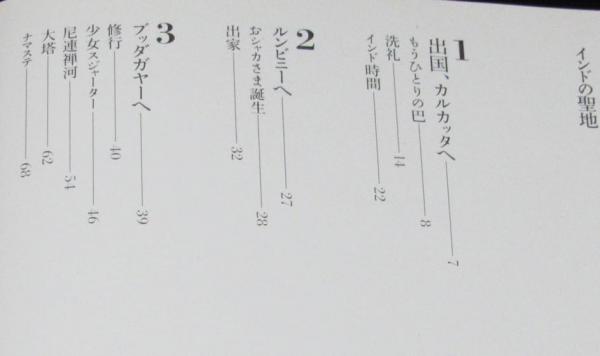 インドの聖地
1
出国、カルカッタへ——7
もうひとりの巴——8
洗礼——14
インド時間——22
2
ルンビニーへ——27
おシャカさま誕生——28
出家——32
3
ブッダガヤーへ——39
修行——40
少女スジャーター——46
尼連禅河——54
大塔——62
ナマステ——68